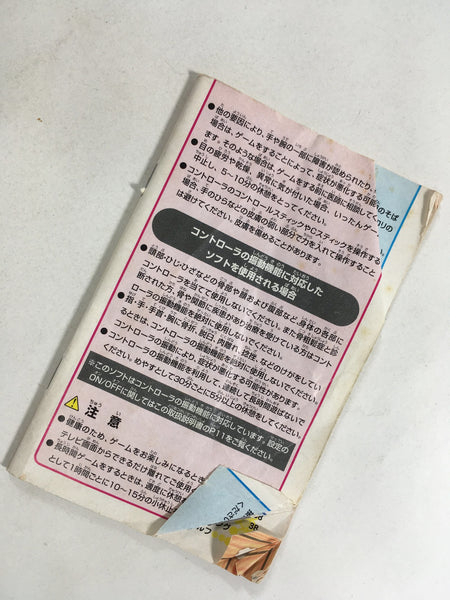 ●他の要因により、手や腕の一部に障害が認められたり、
場合は、ゲームをすることによって、症状が悪化する可能
ます。そのような場合は、ゲームをする前に医師に相談してく
●目の疲労や乾燥、異常に気が付いた場合、いったんゲー
中止し、5～10分の休憩をとってください。
●コントローラのコントロールスティックやCスティックを操作する
場合、手のひらなどの皮膚の弱い部分で力を入れて操作すること
は避けてください。皮膚を傷めることがあります。
コントローラの振動機能に対応した
ソフトを使用される場合
●頭部・ひじ・ひざなどの骨部や顔および腹部など、身体の各部に
コントローラを当てて使用しないでください。また骨粗鬆症と診
断された方、骨や関節に疾患があり治療を受けている方はコント
ローラの振動機能を絶対に使用しないでください。
●指・手・手首・腕に骨折、脱臼、肉離れ、捻挫、などのけがをしてい
るときは、コントローラの振動機能を絶対に使用しないでください。
コントローラの振動により、症状が悪化する可能性があります。
●コントローラの振動機能を利用して、連続して長時間遊ばないで
ください。めやすとして30分ごとに5分以上の休憩をしてください。
※このソフトはコントローラの振動機能に対応しています。設定の
ON/OFFに関してはこの取扱説明書のP.11をご覧ください。
注意
●健康のため、ゲームをお楽しみになるとき
テレビ画面からできるだけ離れてご使用
●長時間ゲームをするときは、適度に休憩
として1時間ごとに10～15分の小休止